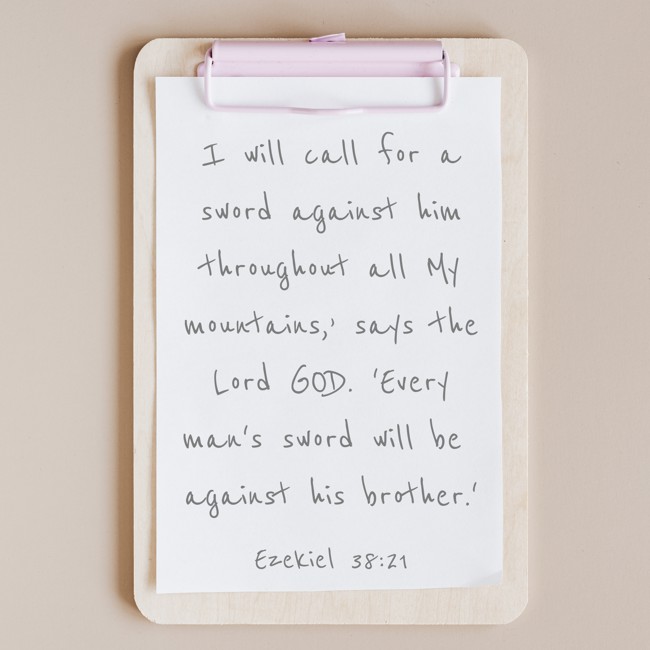 I will call for a
sword against him
throughout all My
mountains,' says the
Lord GOD. 'Every
man's sword will be
against his brother.'
Ezekiel 38:21